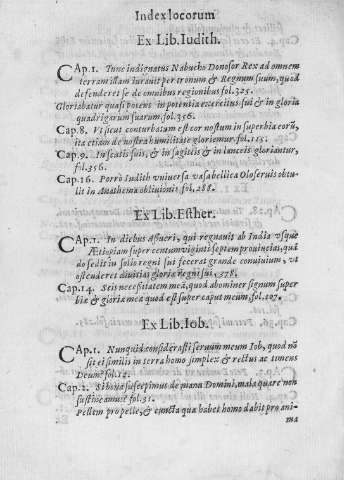 Index locorum
Ex Lib. Iudith.
CAp. 1. Tunc indignatus Nabucho Donosor Rex ad omnem
terram illam iurauit per tronum & Regnum suum, quod
defenderet se de omnibus regionibus fol. 325.
Gloriabatur quasi potens in potentia exercitus sui & in gloria
quadrigarum suarum. fol. 356.
Cap. 8. Vt sicut conturbatum est cor nostrum in superbia eorū,
ita etiam de nostra humilitate gloriemur. fol. 115.
Cap. 9. In scutis suis, & in sagitis & in lanceis gloriantur,
fol. 356.
Cap. 16. Porrò Iudith vniuersa vasa bellica Olofernis obtu-
lit in Anathema obliuionis fol. 288.
Ex Lib. Esther.
CAp. 1. In diebus assueri, qui regnauit ab India vsque
Ætiopiam super centum viginti septem prouincias, quā
do sedit in solio regni sui fecerat grande conuiuium, vt
ostenderet diuitias gloriæ regni sui, 378.
Cap. 14. Scis necessitatem meā, quod abominer signum super
biæ & gloriæ meæ quod est super caput meum, fol. 107.
Ex Lib. Iob.
CAp. 1. Nunquid considerasti seruum meum Iob, quod nō
sit ei similis in terra homo simplex & rectus ac timens
Deum? fol. 14.
Cap. 2. Si bona suscepimus de manu Domini, mala quare non
sustineamus? fol. 31.
Pellem pro pelle, & cuncta quæ habet homo dabit pro ani-
ma